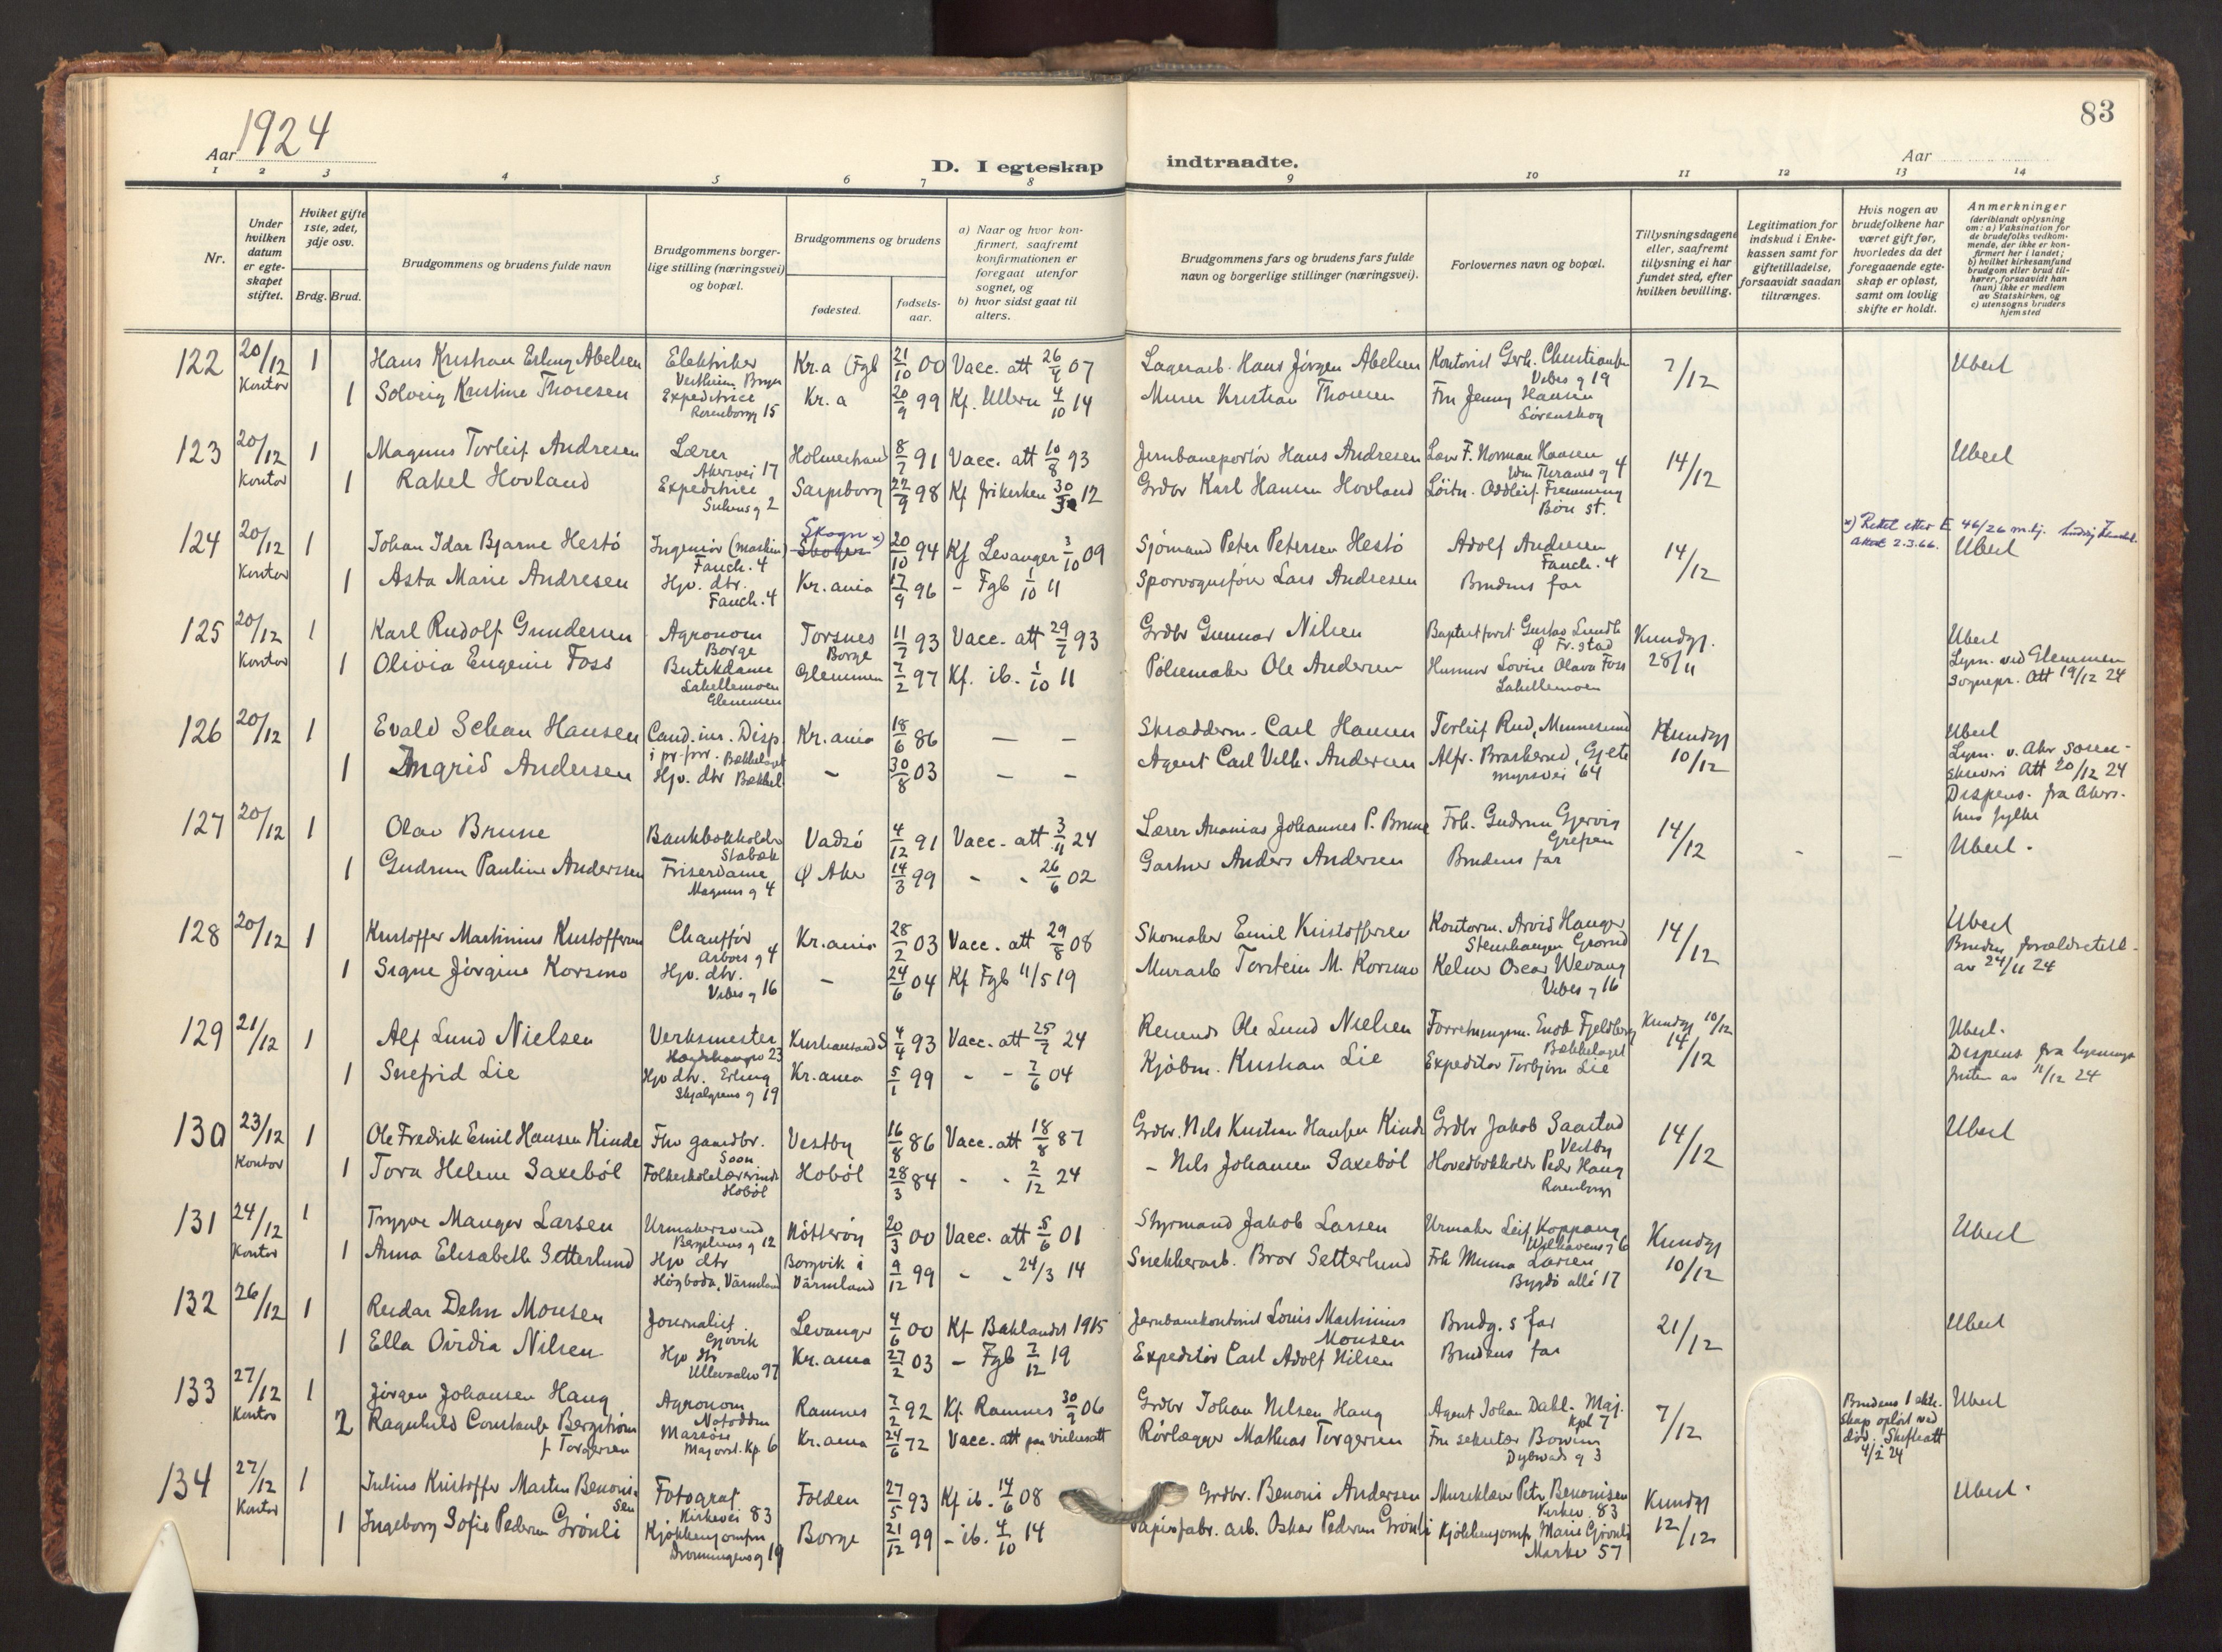 Aar 1924
D. I egteskap indtraadte.
83
Aar
1 2 3 4 5 6 7 8 9 10 11 12 13 14
Nr.
Under hvilken datum er egteskapet stiftet.
Hviket gifte 1ste, 2det, 3dje osv.
Brdg. Brud.
Brudgommens og brudens fulde navn
Brudgommens borgerlige stilling (næringsvei) og bopæl.
Brudgommens og brudens
fødested.
fødselsaar.
a) Naar og hvor konfirmert, saafremt konfirmationen er foregaat utenfor sognet, og
b) hvor sidst gaat til alters.
Brudgommens fars og brudens fars fulde navn og borgerlige stillinger (næringsvei).
Forlovernes navn og bopæl.
Tillysningsdagene eller, saafremt tillysning ei har fundet sted, efter hvilken bevilling.
Legitimation for indskud i Enkekassen samt for giftetilladelse, forsaavidt saadan tiltrænges.
Hvis nogen av brudefolkene har været gift før, hvorledes da det foregaaende egteskap er opløst, samt om lovlig skifte er holdt.
Anmerkninger (deriblandt oplysning om: a) Vaksination for de brudefolks vedkommende, der ikke er konfirmert her i landet; b) hvilket kirkesamfund brudgom eller brud tilhører, forsaavidt han (hun) ikke er medlem av Statskirken, og c) utensogns bruders hjemsted
122 20/12 1 Hans Kristian Erling Abelsen Elektriker Kr.a (Fgb 21/10 00 Vacc. att 26/9 07 Lagerarb. Hans Jörgen Abelsen Kontorist Gerh. Christiansen Vibes g 19 7/12 Uberl
Kontor 1 Solveig Kristine Thoresen Expeditrice Rosenborgg 15 Kr.a 20/9 99 Kf. Ullern 4/10 14 Murer Kristian Thoresen Fru Jenny Hansen Sörenskog
123 20/12 1 Magnus Torleif Andresen Lærer Akersvei 17 Holmestrand 8/7 91 Vacc. att 10/8 93 Jernbaneportör Hans Andresen Lærer F. Norman Hansen Wm Thranes g 4 14/12 Uberl
Kontor 1 Rakel Hovland Expeditrice g 2 Sarpsborg 22/9 98 Kf frikirken 30/ 12 Grdbr Karl Hansen Hovland Löitn. Oddleif Fremming Bön st.
124 20/12 1 Johan Idar Bjarne Hestö Ingeniör (maskin) Fauch. 4 Skogn x) 20/10 94 Kf Levanger 3/10 09 Sjömand Peter Petersen Hestö Adolf Andresen Fauch. 4 14/12 Uberl
x) Rettet etter E 46/26 m.bj. Ludvig
2.3.66.
Kontor 1 Asta Marie Andresen Hjv. dtr. Fauch. 4 Kr.ania 17/9 96 - Fgb 1/10 11 Sporvognsförer Lars Andresen Brudens far
125 20/12 1 Karl Rudolf Gundersen Agronom Borge Torsnes Borge 11/7 93 Vacc. att 29/7 93 Grdbr Gunnar Nilsen Baptistforst. Gustav Lundh Ø Fr.stad Kundgj. 28/11 Uberl
Kontor 1 Olivia Eugenie Foss Butikdame Lahellemoen Glemmen Glemmen 7/2 97 Kf. ib. 1/10 11 Pölsemaker Ole Andersen Lovise Olava Foss Lahellemoen Lysn. ved Glemmen Sognepr. Att 19/12 24
126 20/12 1 Evald Schau Hansen Cand. jur. Disp. i pr.frr. Bækkelaget Kr.ania 18/6 86 — — Skrædderm. Carl Hansen Torleif Rud, Minnesund Kundgj 10/12 Uberl
1 Ingrid Andersen Hjv. dtr Bækkel - 30/8 03 — - Agent Carl Vilh. Andersen Alfr. Braskerud, Gjetemyrsvei 64 Lysn. v. Aker sorenskriveri Att 20/12 24 Dispens. fra Akershus fylke
127 20/12 1 Olav Brune Bankbokholder Stabæk Vadsö 4/12 91 Vacc. att 3/11 24 Lærer Ananias Johannes P. Brune Frk. Gudrun Gjervig Grefsen 14/12 - - Uberl.
1 Gudrun Pauline Andersen Friserdame Magnus g 4 Ø Aker 14/3 99 - - 26/6 02 Gartner Anders Andersen Brudens far
128 20/12 1 Kristoffer Martinius Kristoffersen Chaufför Arbos g 4 Kr.ania 28/2 03 Vacc. att 29/8 08 Skomaker Emil Kristoffersen Kontorm. Arvid Hauger Stenshaugen Grorud 14/12 Uberl
1 Signe Jörgine Korsmo Hjv. dtr. Vibes g 16 - 24/6 04 Kf Fgb 11/5 19 Murarb Torstein M. Korsmo Kelner Oscar Wevang Vibes g 16 Brudens forældretill. av 24/11 24
129 21/12 1 Alf Lund Nielsen Verksmester 23 Kristiansand S 4/4 93 Vacc. att 25/7 24 Ole Lund Nielsen Forretningsm. Enok Fjeldberg Bækkelaget Kundgj 10/12 14/12 Uberl.
1 Snefrid Lie Hjv dtr. Erling Skjalgsens g 19 Kr.ania 5/1 99 - - 7/6 04 Kjöbm. Kristian Lie Expeditör Torbjörn Lie Dispens fra lysnings fristen av 11/12 24
130 23/12 1 Ole Fredrik Emil Hansen Kinde Fhv gaardbr. Soon Vestby 16/8 86 Vacc. att 18/8 87 Grdbr. Nils Kristian Hansen Kinde Grdbr Jakob Saastad Vestby 14/12 Uberl
Kontor 1 Tora Helene Saxeböl Folkeskolelærerinde Hoböl Hoböl 28/3 84 - - 2/12 24 - Nils Johansen Saxeböl Hovedbokholder Peder Haug Rosenborgg
131 24/12 1 Trygve Mauger Larsen Urmakersvend Bergliens g 12 Nötteröy 20/3 00 Vacc. att 5/6 01 Styrmand Jakob Larsen Urmaker Leif Koppang Welhavens g 6 Kundgj 10/12 Uberl
Kontor 1 Anna Elisabeth Setterlund Hjv dtr Högboda, Värmland Borgvik i Värmland 9/12 99 - - 24/3 14 Snekkerarb. Bror Setterlund Frk Larsen Bygdö allé 17
132 26/12 1 Reidar Dehn Monsen Journalist Gjövik Levanger 4/6 00 Kf Baklandet 1915 Jernbanekontorist Louis Martinius Monsen Brudg.s far 21/12 Uberl
1 Ella Ovidia Nilsen Hjv dtr Ullevaalsv 97 Kr.ania 27/2 03 - Fgb 7/12 19 Expeditör Carl Adolf Nilsen Brudens far
133 27/12 1 Jörgen Johansen Haug Agronom Notodden Ramnes 7/2 92 Kf. Ramnes 30/9 06 Grdbr Johan Nilsen Haug Agent Johan Dahl. Maj. kpl 7 7/12 Brudens 1 ekteskap oplöst ved död. Skifteatt 4/2 24 Uberl
Kontor 2 Ragnhild Constanse Bergström f Torgersen Massöse Majorst. Kp. 6 Kr.ania 24/6 72 Vacc. att paa vielsesatt Rörlægger Mathias Torgersen Fru sekretær Dybwads g 3
134 27/12 1 Julius Kristoffer Martin Benonisen Fotograf Kirkevei 83 Folden 27/5 93 Kf ib. 14/6 08 Grdbr. Benoni Andersen Musiklærer Petr Benonisen Kirkev. 83 Kundgj 12/12 Uberl.
Kontor 1 Ingeborg Sofie Pedersen Grönli Kjökkenjomfru Dronningens g 19 Borge 21/12 99 - ib. 4/10 14 Papirfabr. arb. Oskar Pedersen Grönli Kjökkenjomfr. Marie Grönli Markv 57